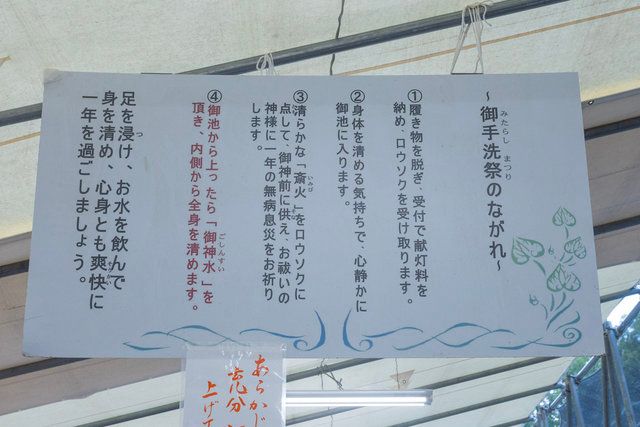 ～御手洗祭のながれ～
みたらし まつり
①履き物を脱ぎ、受付で献灯料を
納め、ロウソクを受け取ります。
②身体を清める気持ちで、心静かに
御池に入ります。
③清らかな「斎火」をロウソクに
いみび
点して、御神前に供え、お祓いの
神様に一年の無病息災をお祈り
します。
④御池から上ったら「御神水」を
ごしんすい
頂き、内側から全身を清めます。
足を浸け、お水を飲んで
つ
身を清め、心身とも爽快に
一年を過ごしましょう。
あらかじ
充分
上げて